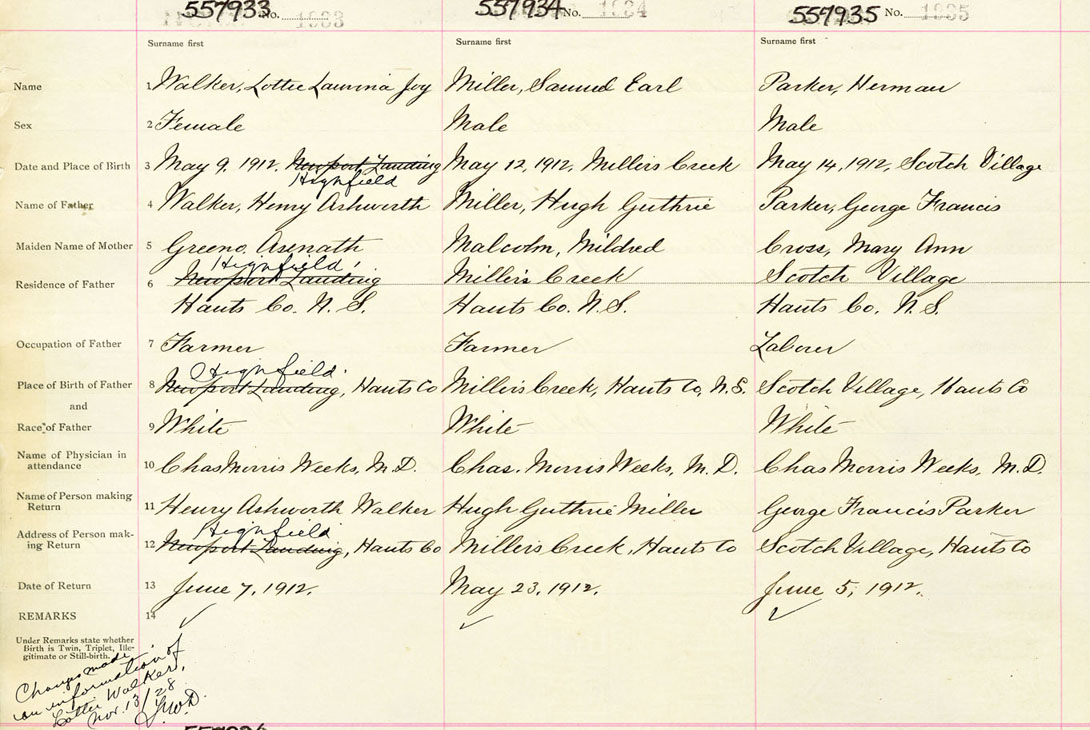 557933 No. 1833 557934 No. 1834 557935 No. 1835
Surname first Surname first Surname first
Name 1 Walker, Lottie Laurina Joy Miller, Samuel Earl Parker, Herman
Sex 2 Female Male Male
Date and Place of Birth 3 May 9, 1912. Newport Landing May 12, 1912, Millers Creek May 14, 1912, Scotch Village
Highfield
Name of Father 4 Walker, Henry Ashworth Miller, Hugh Guthrie Parker, George Francis
Maiden Name of Mother 5 Greeno, Asenath Malcolm, Mildred Cross, Mary Ann
Highfield
Residence of Father 6 Newport Landing Millers Creek Scotch Village
Hants Co. N. S. Hants Co. N.S. Hants Co. N.S.
Occupation of Father 7 Farmer Farmer Laborer
Highfield
Place of Birth of Father 8 Newport Landing, Hants Co Millers Creek, Hants Co, N.S. Scotch Village, Hants Co
and
Race of Father 9 White White White
Name of Physician in
attendance 10 Chas Morris Weeks, M.D. Chas. Morris Weeks, M.D. Chas Morris Weeks, M.D.
Name of Person making
Return 11 Henry Ashworth Walker Hugh Guthrie Miller George Francis Parker
Highfield
Address of Person mak-
ing Return 12 Newport Landing, Hants Co Millers Creek, Hants Co Scotch Village, Hants Co
Date of Return 13 June 7, 1912. May 23, 1912. June 5, 1912.
REMARKS 14
Under Remarks state whether
Birth is Twin, Triplet, Ille-
gitimate or Still-birth.
Changes made
on information of
Lottie Walker,
Nov. 13/28